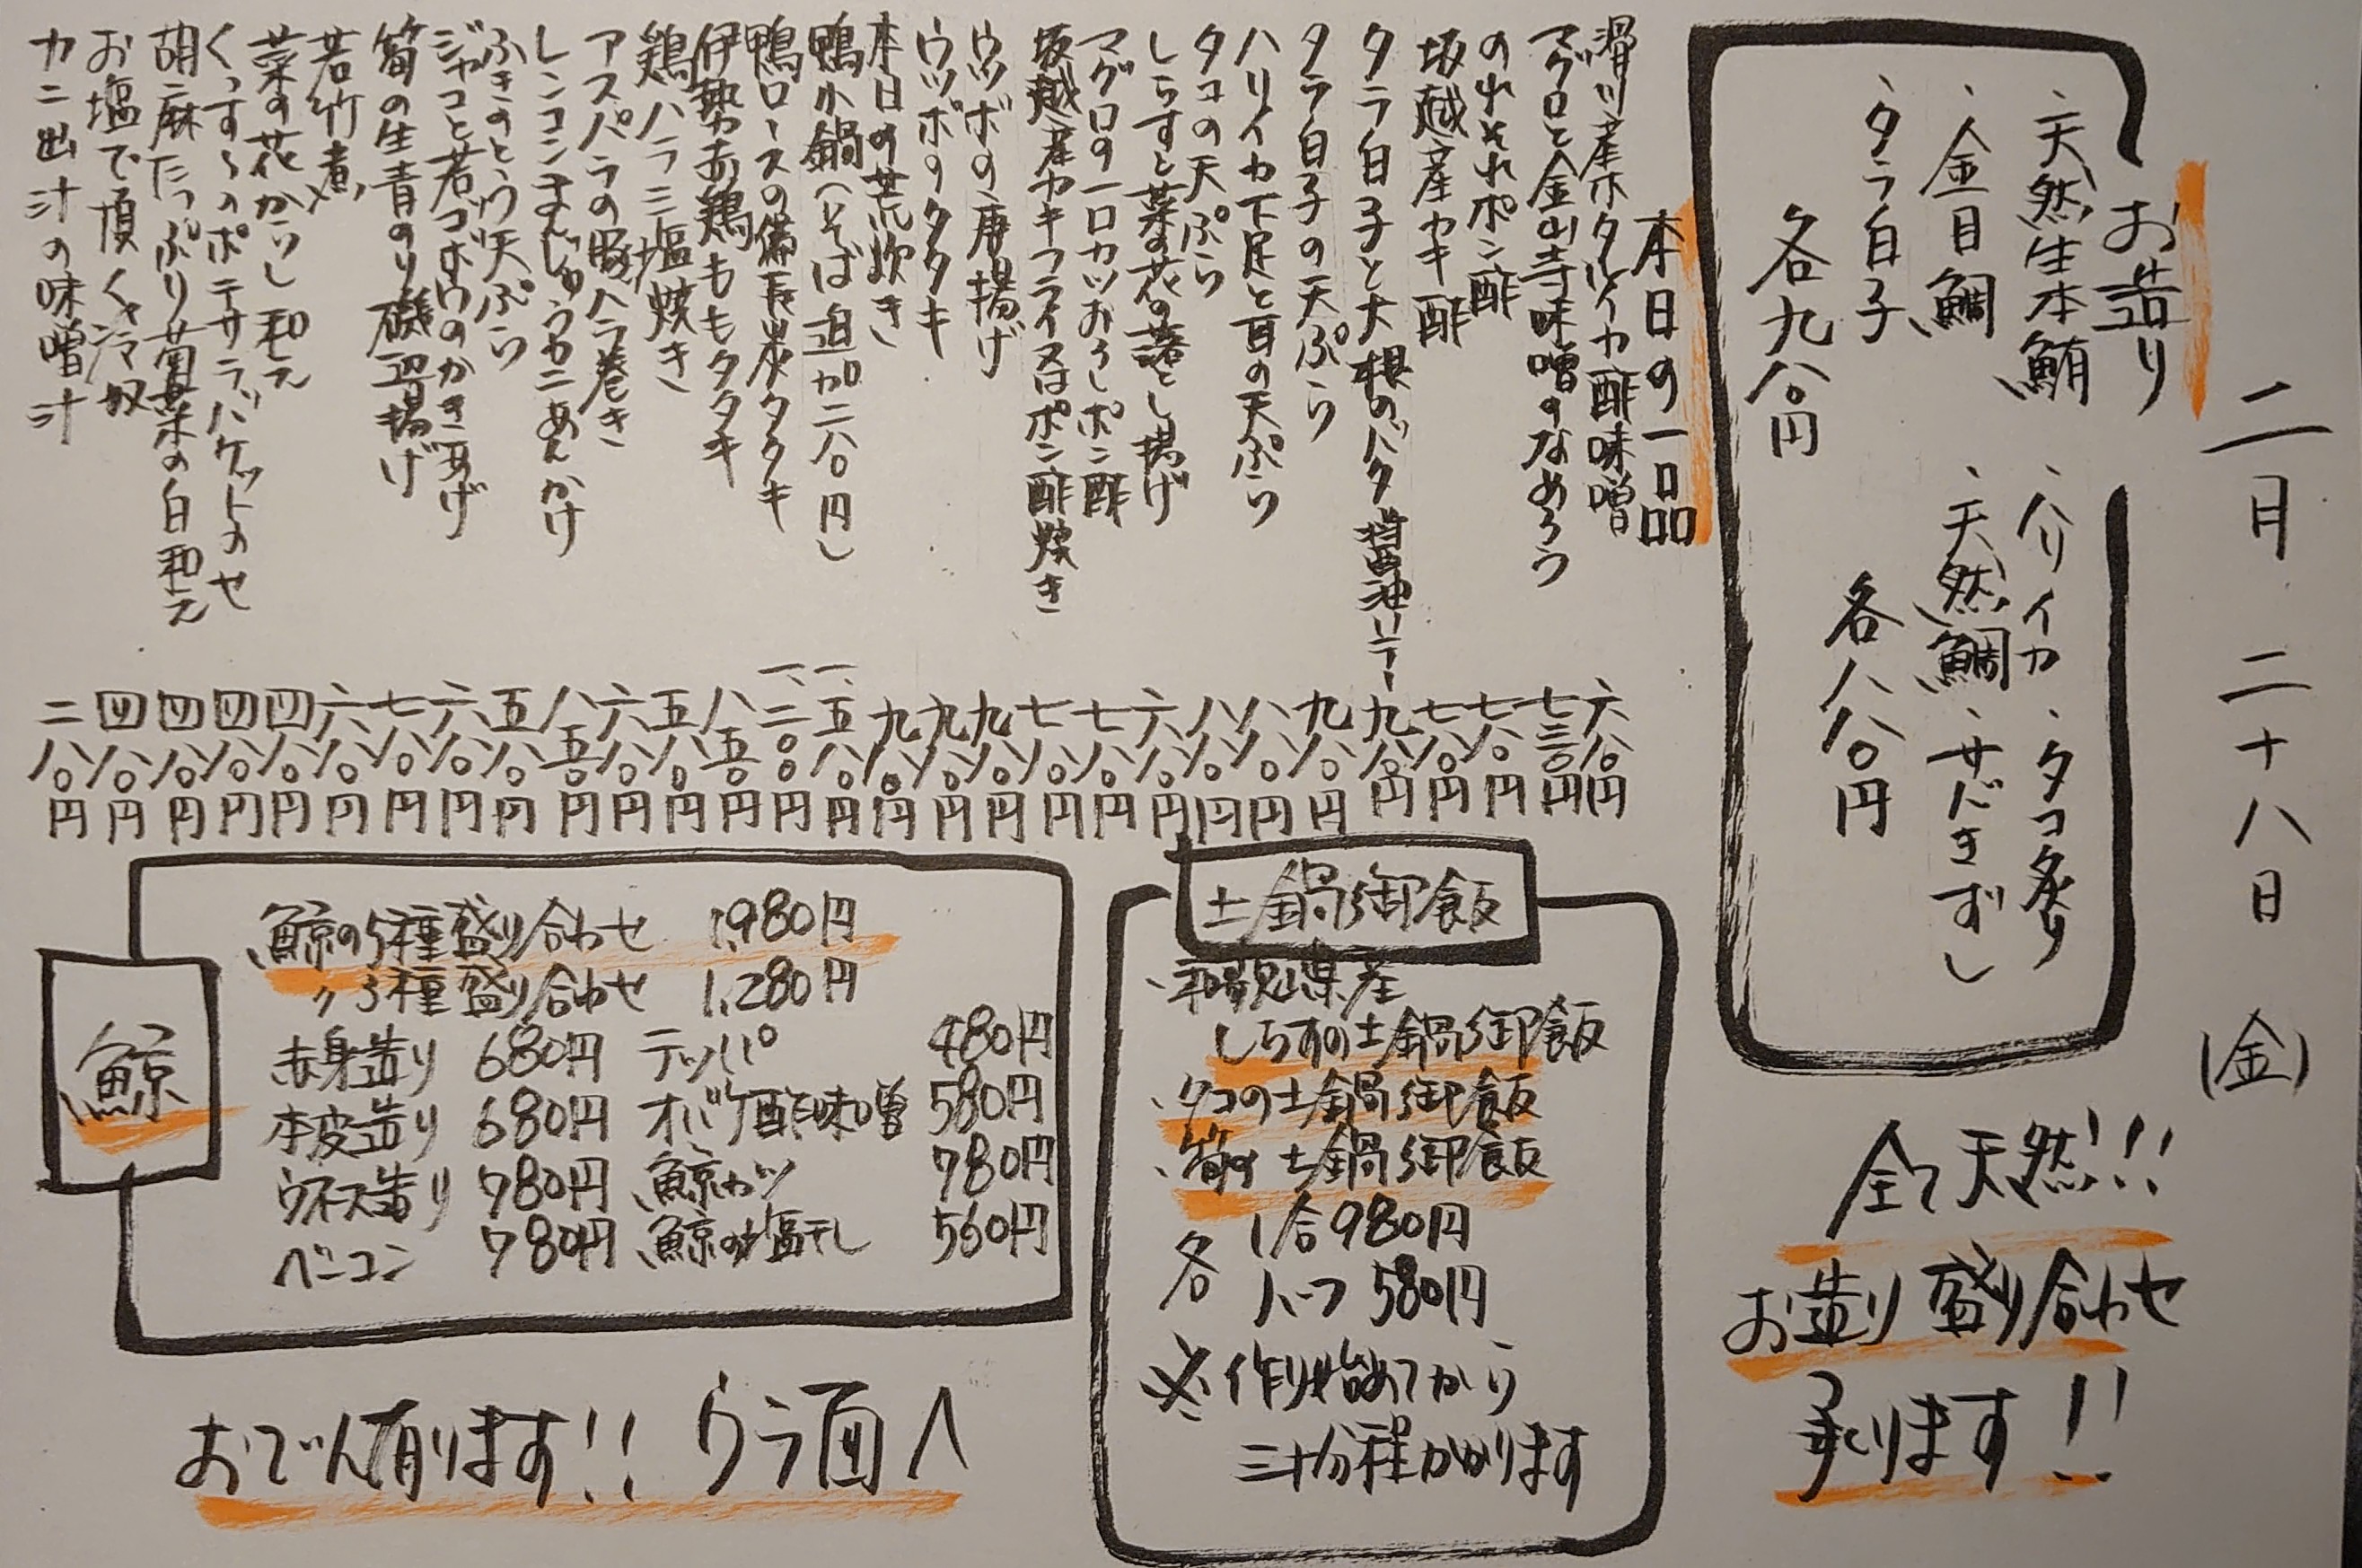 二月 二十八日 (金)
お造り
・天然生本鮪
・金目鯛
・タラ白子
各九八〇円
・ハリイカ ・タコ炙り
・天然鯛 ・サバきずし
各八八〇円
全て天然!!
お造り盛り合わせ
承ります!!
本日の一品
滑川産ホタルイカ酢味噌 六八〇円
マグロと金山寺味噌のなめろう 七三〇円
のれそれポン酢 七八〇円
坂越産カキ酢 七八〇円
タラ白子と大根のバター醤油ソテー 九八〇円
タラ白子の天ぷら 九八〇円
ハリイカ下足と耳の天ぷら 八八〇円
タコの天ぷら 八八〇円
しらすと菜の花の落とし揚げ 六八〇円
マグロの一口カツおろしポン酢 七八〇円
坂越産カキフライ又はポン酢焼き 七八〇円
ウツボの唐揚げ 九八〇円
ウツボのタタキ 九八〇円
本日の荒炊き 九八〇円
鴨小鍋(そば追加二八〇円) 一、五八〇円
鴨ロースの備長炭タタキ 一、二〇〇円
伊勢赤鶏ももタタキ 八五〇円
鶏ハラミ塩焼き 五八〇円
アスパラの豚バラ巻き 六八〇円
レンコンまんじゅうカニあんかけ 八五〇円
ふきのとう天ぷら 五八〇円
ジャコと若ゴボウのかき揚げ 六八〇円
筍の生青のり磯辺揚げ 七八〇円
若竹煮 六八〇円
菜の花からし和え 四八〇円
くっすんのポテサラ、バケットのせ 四八〇円
胡麻たっぷり菊菜の白和え 四八〇円
お塩で頂く冷奴 四八〇円
カニ出汁の味噌汁 二八〇円
土鍋御飯
・和歌山県産
しらすの土鍋御飯
・タコの土鍋御飯
・筍の土鍋御飯
各 1合980円
ハーフ 580円
※作り始めてから
三十分程かかります
鯨
鯨の5種盛り合わせ 1,980円
〃 3種盛り合わせ 1,280円
赤身造り 680円 テッパ 480円
本皮造り 680円 オバケ酢味噌 580円
ウネス造り 780円 鯨カツ 780円
ベーコン 780円 鯨の塩干し 560円
おでん有ります!! ウラ面へ